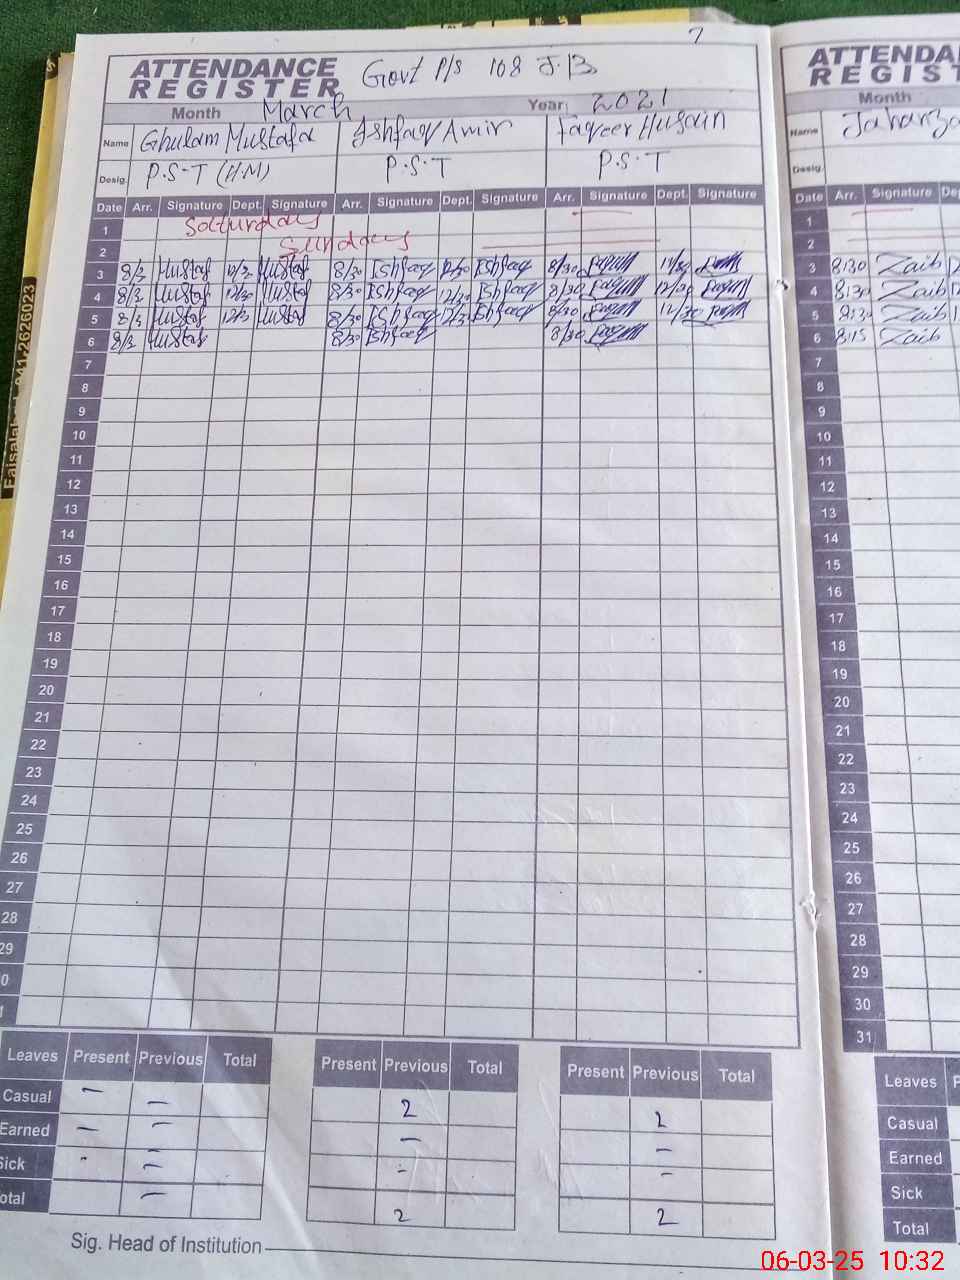 7
ATTENDANCE REGISTER Govt P/S 108 J.B.
Month March Year: 2021
Name Ghulam Mustafa Ishfaq Amir Faqeer Husain
Desig. P.S.T (H.M) P.S.T P.S.T
Date Arr. Signature Dept. Signature Arr. Signature Dept. Signature Arr. Signature Dept. Signature
1 Satturday
2 Sunday
3 8/3 Mustaf 12/3 Mustaf 8/30 Ishfaq 12/30 Ishfaq 8/30
4 8/3 Mustaf 12/3 Mustaf 8/30 Ishfaq 12/30 Ishfaq 8/30 12/30
5 8/3 Mustaf 12/3 Mustaf 8/30 Ishfaq 12/30 Ishfaq 8/30 12/30
6 8/3 Mustaf 8/30 Ishfaq 8/30
7
8
9
10
11
12
13
14
15
16
17
18
19
20
21
22
23
24
25
26
27
28
29
0
1
Leaves Present Previous Total Present Previous Total Present Previous Total
Casual – – 2 2
Earned – – – –
Sick - – - -
otal – 2 2
Sig. Head of Institution
ATTENDA
REGIST
Month
Name Jahanza
Desig.
Date Arr. Signature De
1
2
3 8:30 Zaib 12
4 8:30 Zaib 12
5 8:30 Zaib 1
6 8:15 Zaib
7
8
9
10
11
12
13
14
15
16
17
18
19
20
21
22
23
24
25
26
27
28
29
30
31
Leaves P
Casual
Earned
Sick
Total
Faisalabad. 041-2626023
06-03-25 10:32